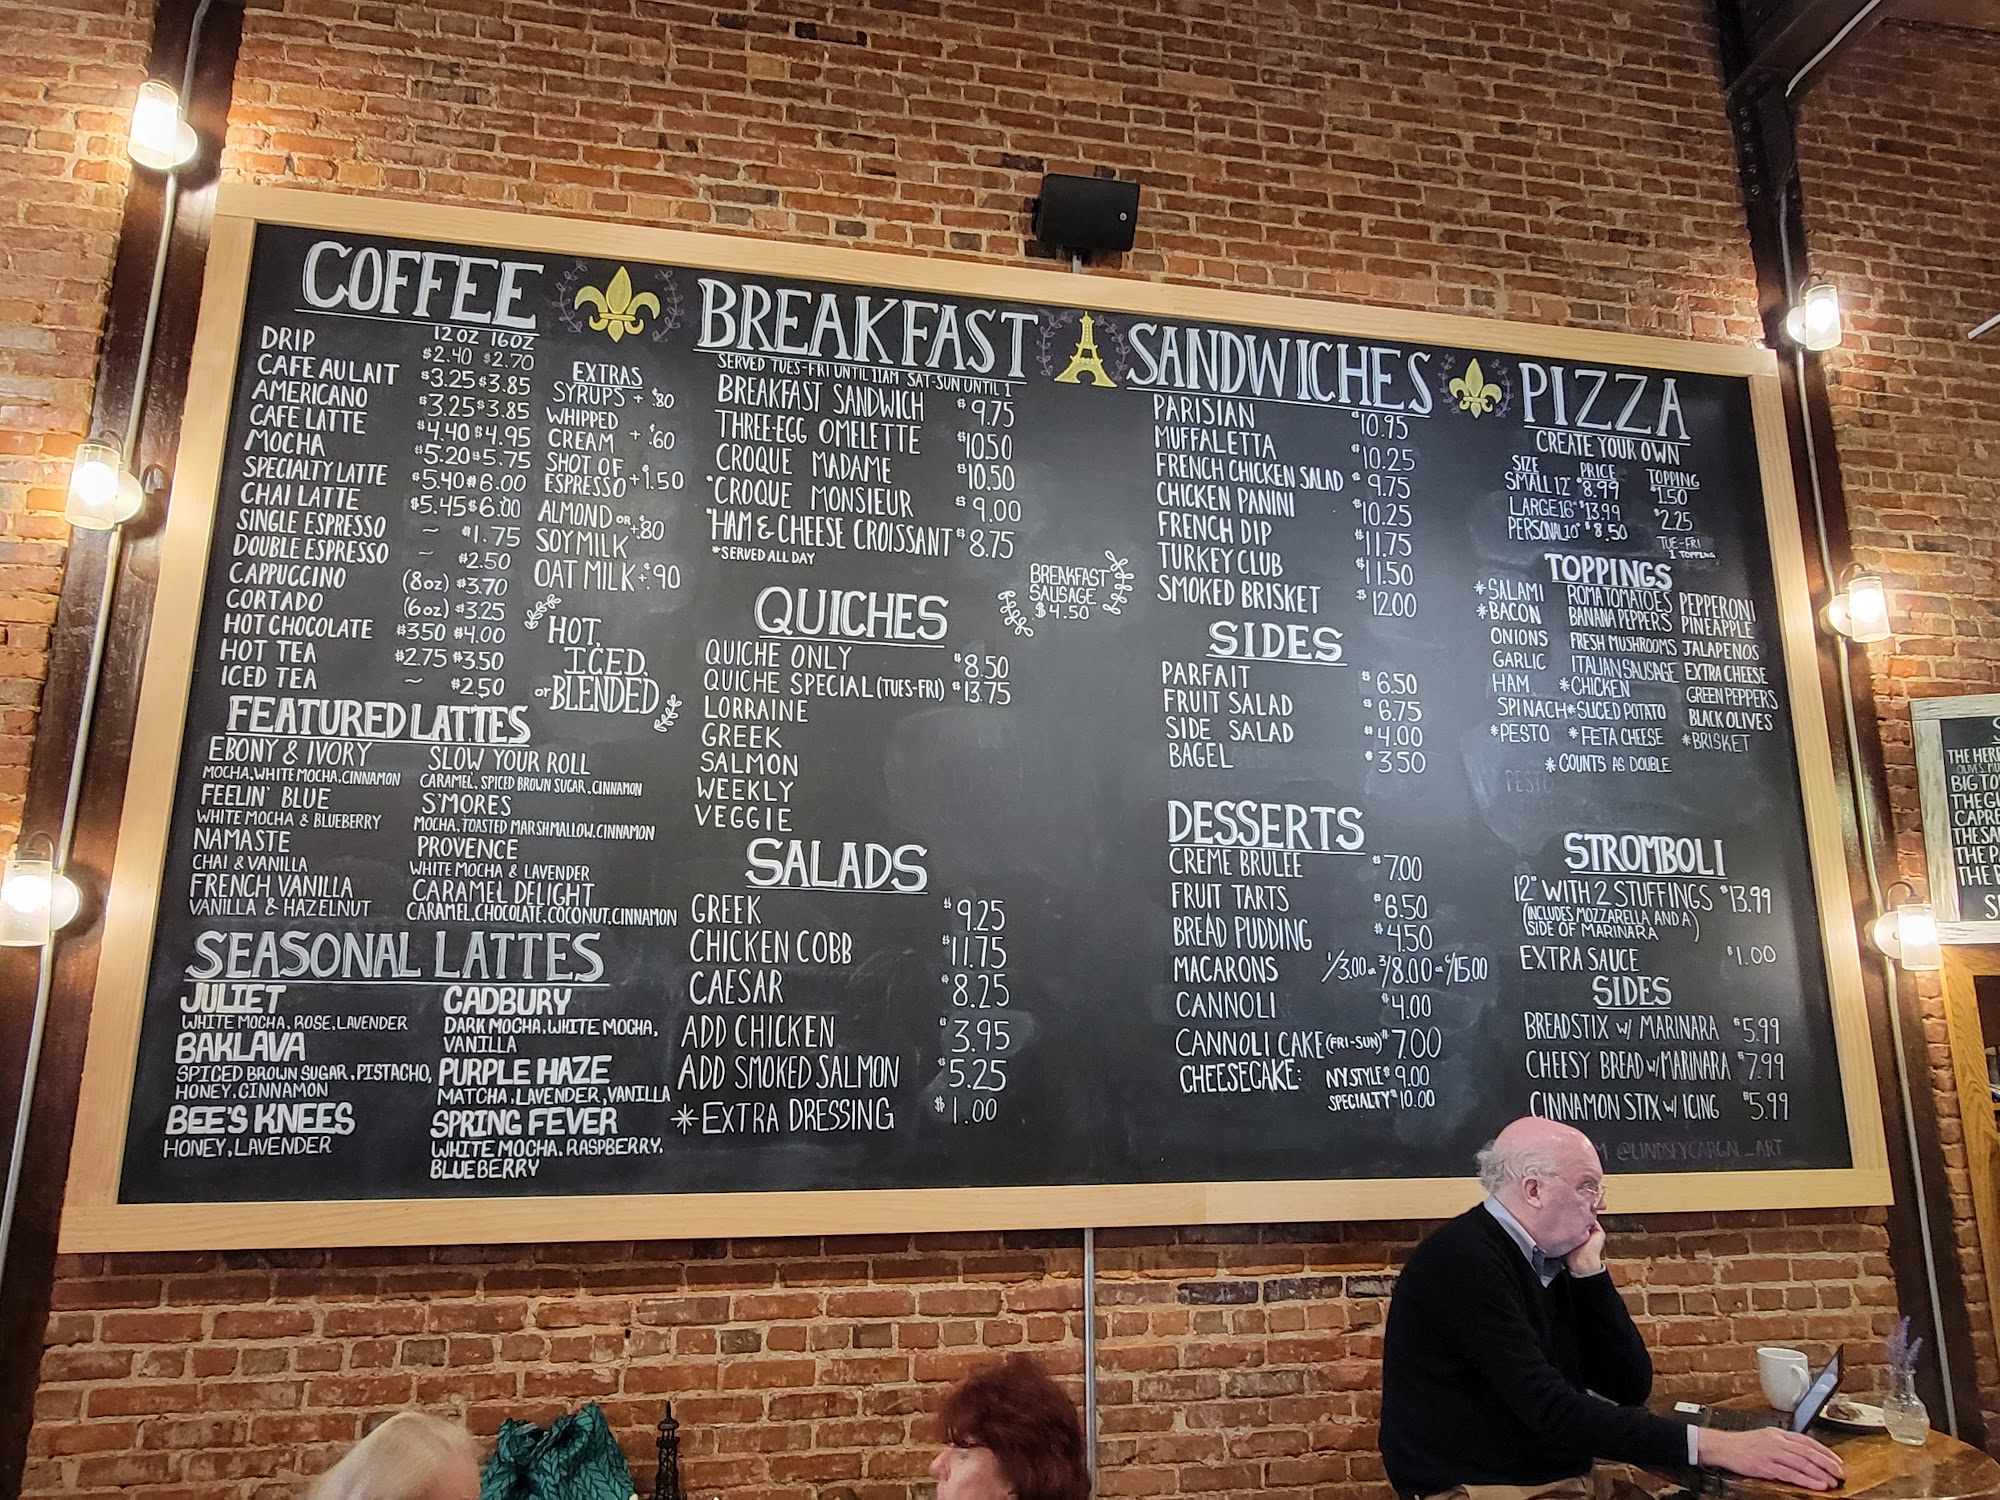 COFFEE
12 OZ 16 OZ
DRIP $2.40 $2.70
CAFE AU LAIT $3.25 $3.85
AMERICANO $3.25 $3.85
CAFE LATTE $4.40 $4.95
MOCHA $5.20 $5.75
SPECIALTY LATTE $5.40 $6.00
CHAI LATTE $5.45 $6.00
SINGLE ESPRESSO ~ $1.75
DOUBLE ESPRESSO ~ $2.50
CAPPUCCINO (8oz) $3.70
CORTADO (6oz) $3.25
HOT CHOCOLATE $3.50 $4.00
HOT TEA $2.75 $3.50
ICED TEA ~ $2.50
EXTRAS
SYRUPS + $.80
WHIPPED
CREAM + $.60
SHOT OF
ESPRESSO + $1.50
ALMOND OR
SOY MILK +.80
OAT MILK + $.90
HOT,
ICED,
or BLENDED
FEATURED LATTES
EBONY & IVORY
MOCHA, WHITE MOCHA, CINNAMON
FEELIN' BLUE
WHITE MOCHA & BLUEBERRY
NAMASTE
CHAI & VANILLA
FRENCH VANILLA
VANILLA & HAZELNUT
SLOW YOUR ROLL
CARAMEL, SPICED BROWN SUGAR, CINNAMON
S'MORES
MOCHA, TOASTED MARSHMALLOW, CINNAMON
PROVENCE
WHITE MOCHA & LAVENDER
CARAMEL DELIGHT
CARAMEL, CHOCOLATE, COCONUT, CINNAMON
SEASONAL LATTES
JULIET
WHITE MOCHA, ROSE, LAVENDER
BAKLAVA
SPICED BROWN SUGAR, PISTACHO,
HONEY, CINNAMON
BEE'S KNEES
HONEY, LAVENDER
CADBURY
DARK MOCHA, WHITE MOCHA,
VANILLA
PURPLE HAZE
MATCHA, LAVENDER, VANILLA
SPRING FEVER
WHITE MOCHA, RASPBERRY,
BLUEBERRY
BREAKFAST
SERVED TUES-FRI UNTIL 11AM SAT-SUN UNTIL 1
BREAKFAST SANDWICH $9.75
THREE-EGG OMELETTE $10.50
CROQUE MADAME $10.50
*CROQUE MONSIEUR $9.00
*HAM & CHEESE CROISSANT $8.75
*SERVED ALL DAY
BREAKFAST
SAUSAGE
$4.50
QUICHES
QUICHE ONLY $8.50
QUICHE SPECIAL (TUES-FRI) $13.75
LORRAINE
GREEK
SALMON
WEEKLY
VEGGIE
SALADS
GREEK $9.25
CHICKEN COBB $11.75
CAESAR $8.25
ADD CHICKEN $3.95
ADD SMOKED SALMON $5.25
*EXTRA DRESSING $1.00
SANDWICHES
PARISIAN $10.95
MUFFALETTA $10.25
FRENCH CHICKEN SALAD $9.75
CHICKEN PANINI $10.25
FRENCH DIP $11.75
TURKEY CLUB $11.50
SMOKED BRISKET $12.00
SIDES
PARFAIT $6.50
FRUIT SALAD $6.75
SIDE SALAD $4.00
BAGEL $3.50
DESSERTS
CREME BRULEE $7.00
FRUIT TARTS $6.50
BREAD PUDDING $4.50
MACARONS 1/3.00 or 3/8.00 or 6/15.00
CANNOLI $4.00
CANNOLI CAKE (FRI-SUN) $7.00
CHEESECAKE: NY STYLE $9.00
SPECIALTY $10.00
PIZZA
CREATE YOUR OWN
SIZE PRICE TOPPING
SMALL 12" $8.99 $1.50
LARGE 16" $13.99 $2.25
PERSONAL 10" $8.50 TUE-FRI
1 TOPPING
TOPPINGS
*SALAMI ROMA TOMATOES PEPPERONI
*BACON BANANA PEPPERS PINEAPPLE
ONIONS FRESH MUSHROOMS JALAPENOS
GARLIC ITALIAN SAUSAGE EXTRA CHEESE
HAM *CHICKEN GREEN PEPPERS
SPINACH *SLICED POTATO BLACK OLIVES
*PESTO *FETA CHEESE *BRISKET
*COUNTS AS DOUBLE
PESTO
STROMBOLI
12" WITH 2 STUFFINGS $13.99
(INCLUDES MOZZARELLA AND A
SIDE OF MARINARA)
EXTRA SAUCE $1.00
SIDES
BREADSTIX W/ MARINARA $5.99
CHEESY BREAD W/ MARINARA $7.99
CINNAMON STIX W/ ICING $5.99
@LINDSEYCARGAL_ART
THE
BIG
THE
THE
THE
THE